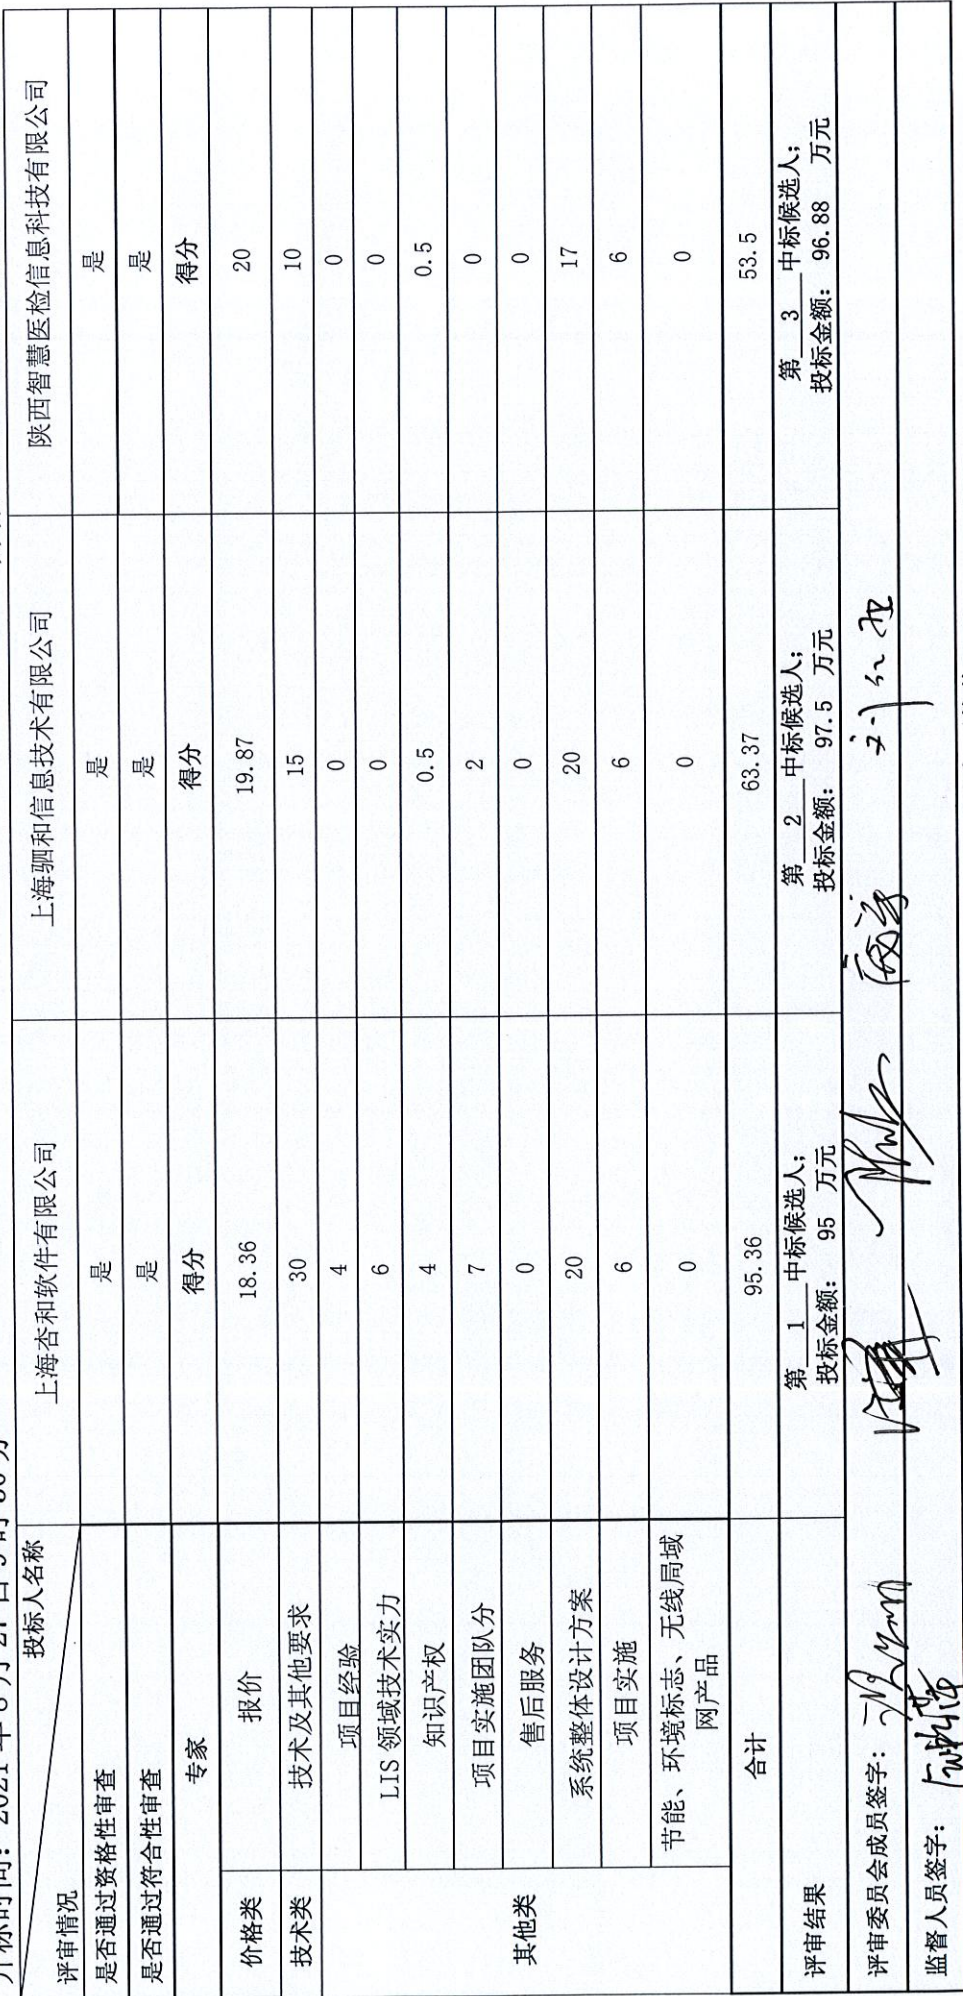 开标时间：2021 年 8 月 27 日 9 时 30 分
评审情况 投标人名称 上海杏和软件有限公司 上海驷和信息技术有限公司 陕西智慧医检信息科技有限公司
是否通过资格性审查 是 是 是
是否通过符合性审查 是 是 是
专家 得分 得分 得分
价格类 报价 18.36 19.87 20
技术类 技术及其他要求 30 15 10
其他类
项目经验 4 0 0
LIS 领域技术实力 6 0 0
知识产权 4 0.5 0.5
项目实施团队分 7 2 0
售后服务 0 0 0
系统整体设计方案 20 20 17
项目实施 6 6 6
节能、环境标志、无线局域
网产品 0 0 0
合计 95.36 63.37 53.5
评审结果 第 1 中标候选人； 第 2 中标候选人； 第 3 中标候选人；
投标金额： 95 万元 投标金额： 97.5 万元 投标金额： 96.88 万元
评审委员会成员签字：
监督人员签字：